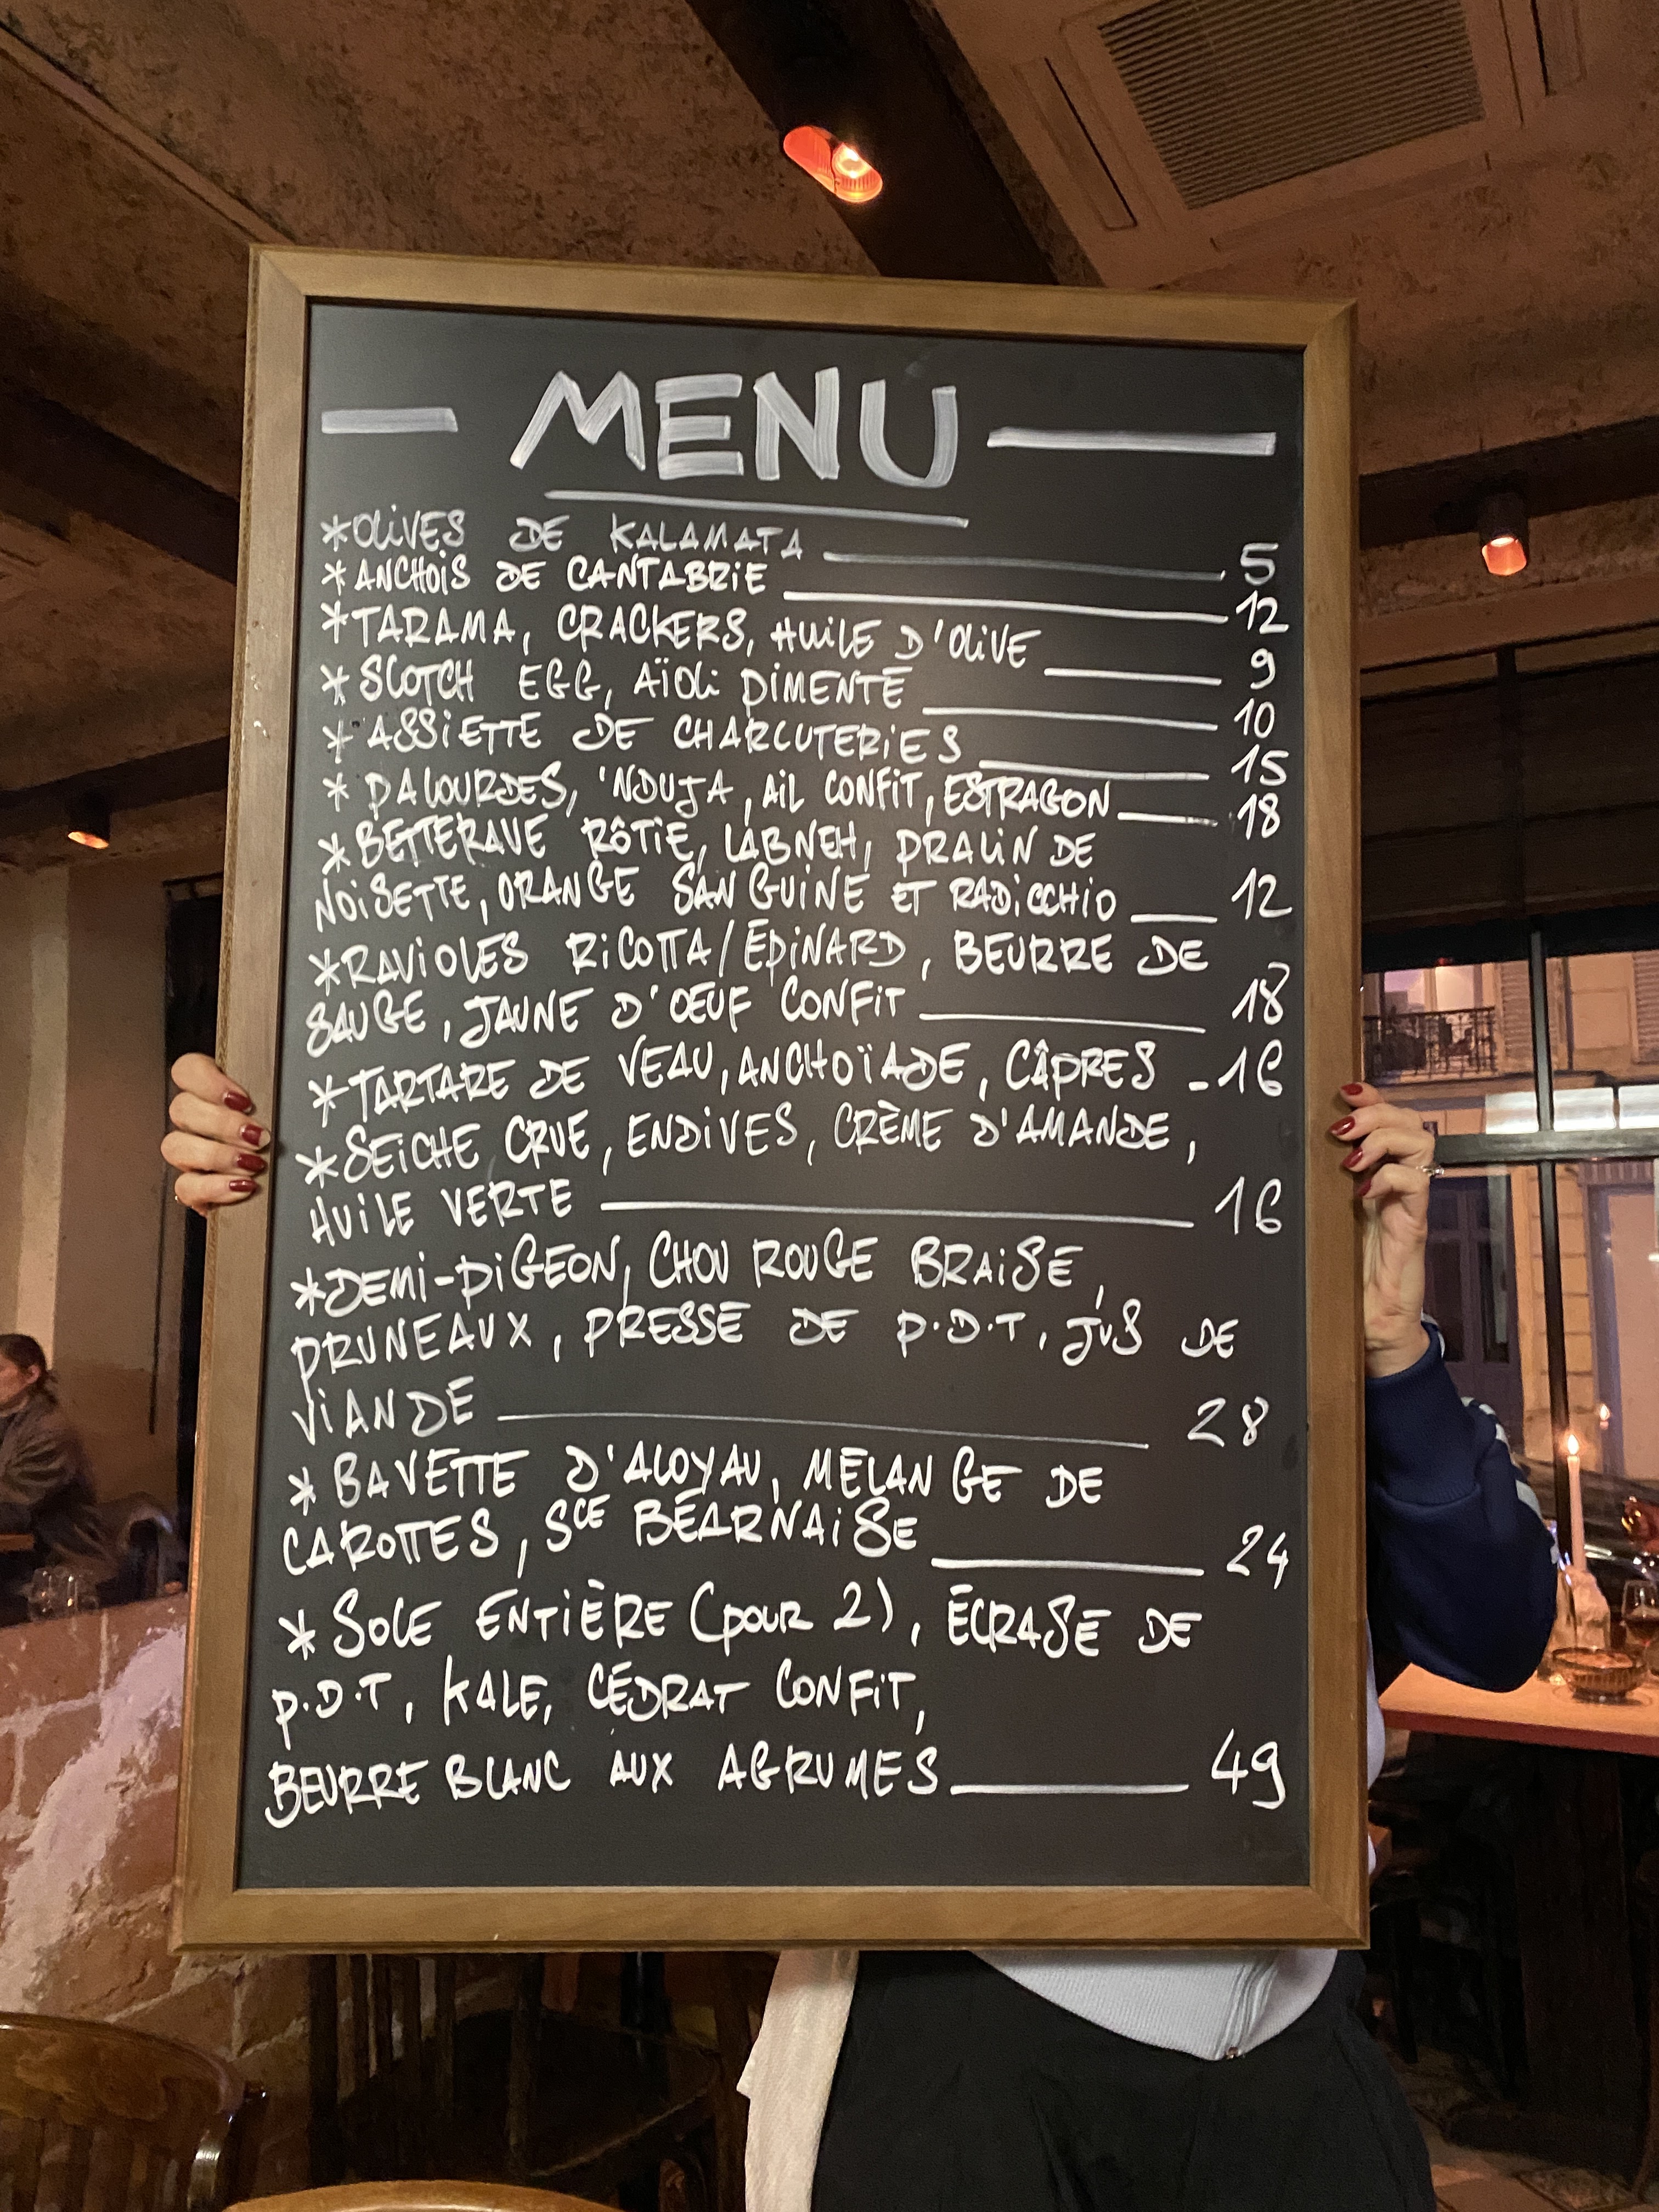 MENU
*OLIVES DE KALAMATA 5
*ANCHOIS DE CANTABRIE 12
*TARAMA, CRACKERS, HUILE D'OLIVE 9
*SCOTCH EGG, AÏOLI PIMENTÉ 10
*ASSIETTE DE CHARCUTERIES 15
*PALOURDES, 'NDUJA, AIL CONFIT, ESTRAGON 18
*BETTERAVE RÔTIE, LABNEH, PRALIN DE
NOISETTE, ORANGE SANGUINE ET RADICCHIO 12
*RAVIOLES RICOTTA/ÉPINARD, BEURRE DE
SAUGE, JAUNE D'ŒUF CONFIT 18
*TARTARE DE VEAU, ANCHOÏADE, CÂPRES - 16
*SEICHE CRUE, ENDIVES, CRÈME D'AMANDE,
HUILE VERTE 16
*DEMI-PIGEON, CHOU ROUGE BRAISÉ,
PRUNEAUX, PRESSÉ DE P.D.T, JUS DE
VIANDE 28
*BAVETTE D'ALOYAU, MÉLANGE DE
CAROTTES, SCE BÉARNAISE 24
*SOLE ENTIÈRE (POUR 2), ÉCRASÉ DE
P.D.T, KALE, CÉDRAT CONFIT,
BEURRE BLANC AUX AGRUMES 49